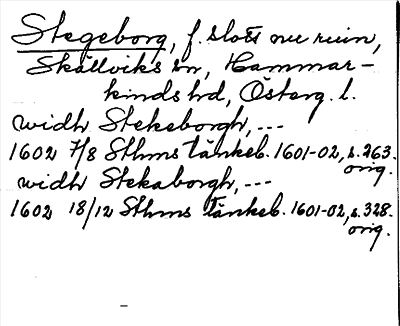 Stegeborg, f. slott nu ruin,
Skällviks sn, Hammar-
kinds hd, Österg. l.
widh Stekeborgh, ---
1602 7/8 Sthms tänkeb. 1601-02, s. 263.
orig.
widh Stekaborgh, ---
1602 18/12 Sthms tänkeb. 1601-02, s. 328.
orig.